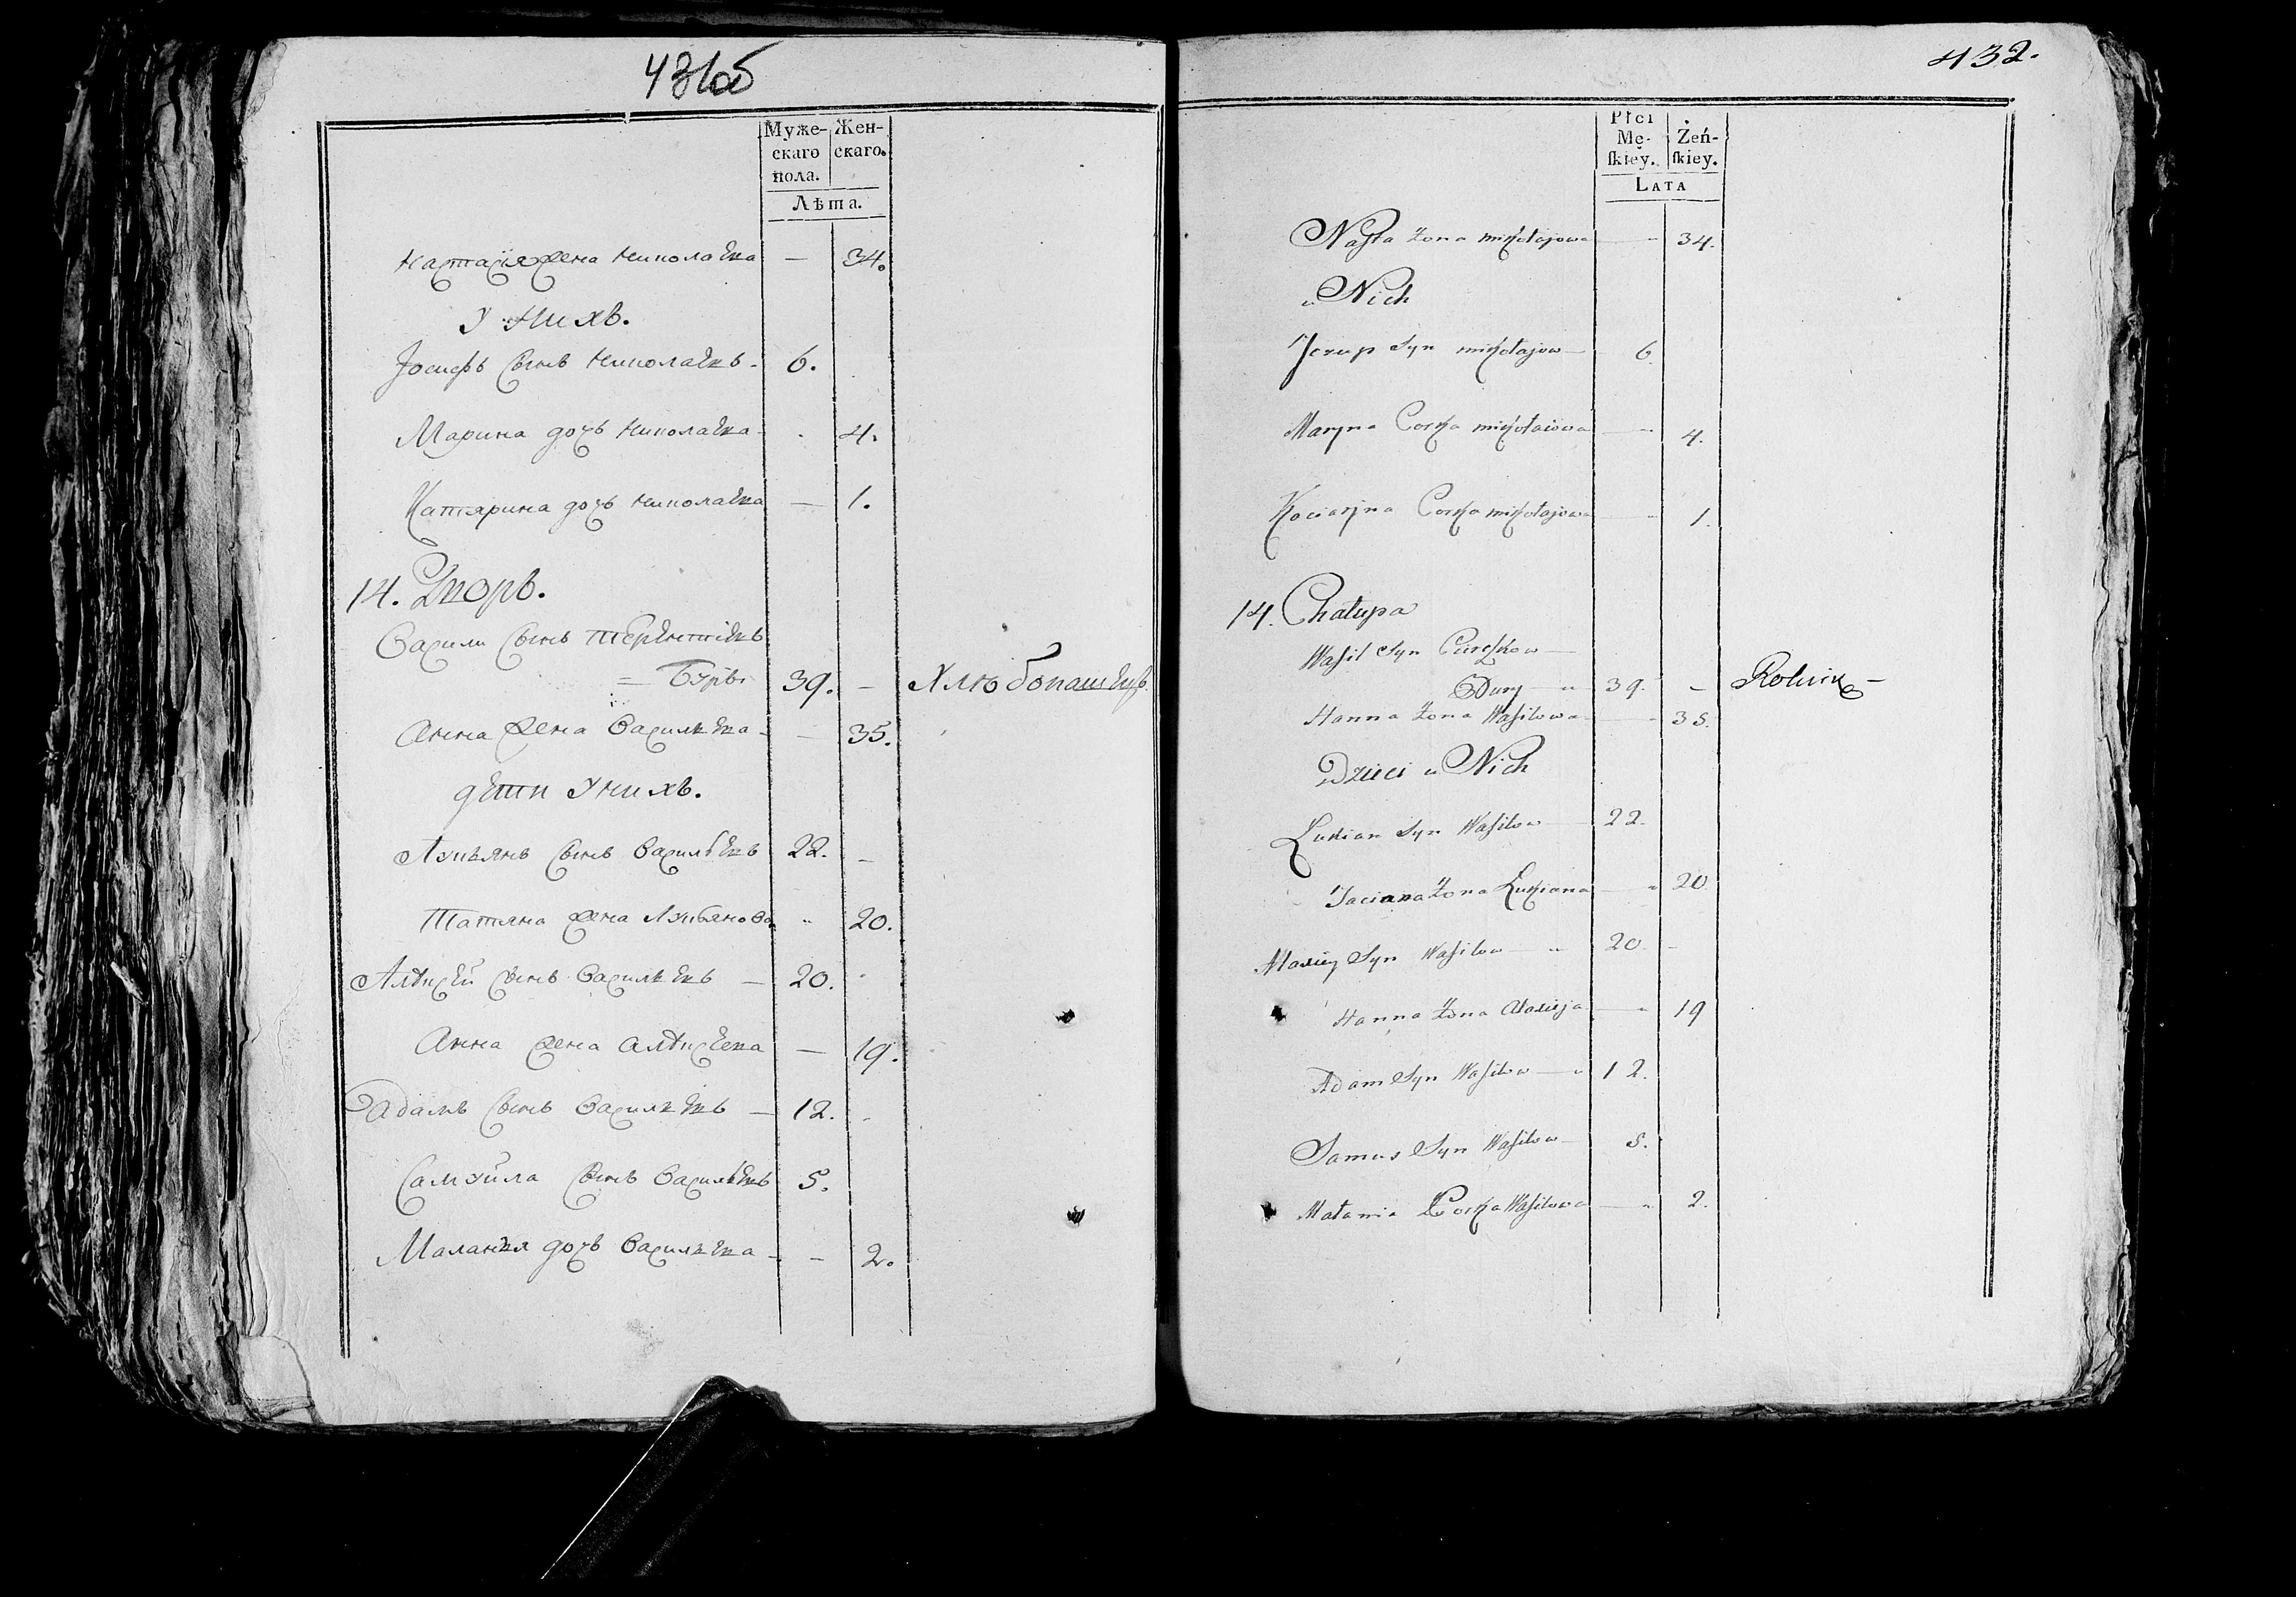 431об
Муже- Жен-
скаго скаго.
пола.
Лѣта.
Настасія жена Николаева — 34.
У нихъ.
Іосифъ сынъ Николаевъ. 6.
Марина дочь Николаева - 4.
Катярина дочь Николаева — 1.
14. Дворъ.
Васили сынъ Терентіевъ
= Бурв. 39. — Хлебопашецъ.
Анна жена Васильева - — 35.
дети У нихъ.
Лукьянъ сынъ Васильевъ 22. —
Татяна жена Лукьянова „ 20.
Алексей сынъ Васильевъ — 20.
Анна жена Алексеева — 19.
Адамъ сынъ Васильевъ — 12. -
Самуила сынъ Васильевъ 5.
Маланья дочь Васильева - — 2.
432.
Płci
Mę- Żeń-
ſkiey. ſkiey.
LATA
Nasta Zona mikołajowa — „ 34.
u Nich
Jozup Syn mikołajow — 6
Maryna Corka mikołaiowa — „ 4.
Kaciaryna Corka mikołajowa — „ 1.
14. Chałupa
Wasil Syn
Bury — „ 39. — Rolnik —
Hanna Zona Wasilowa — „ 35.
Dzieci u Nich
Łukian Syn Wasilow — 22.
Taciana Zona Łukiana — „ 20
Alaxiey Syn Wasilow — „ 20 -
Hanna Zona Alaxieja — „ 19
Adam Syn Wasilow — „ 12.
Samus Syn Wasilow — 5.
Małania Corka Wasilowa — „ 2.